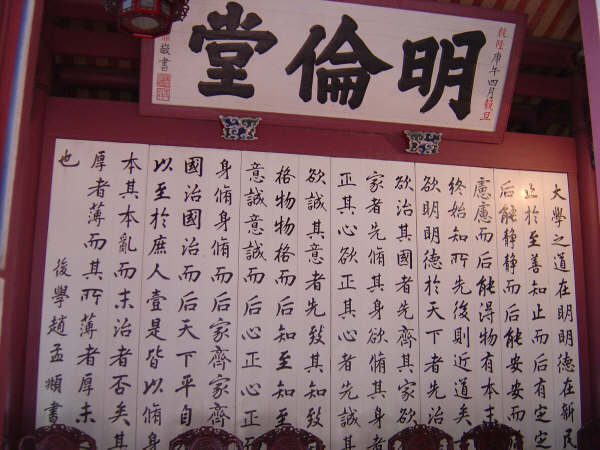 乾隆庚午四月穀旦
明倫堂
敬書
大學之道在明明德在新民
止於至善知止而后有定定
后能静静而后能安安而
慮慮而后能淂物有本末
終始知所先後則近道矣
欲明明德於天下者先治
欲治其國者先齊其家欲
家者先脩其身欲脩其身
正其心欲正其心者先誠
欲誠其意者先致其知致
格物物格而后知至知至
意誠意誠而后心正心正
身脩身脩而后家齊家齊
國治國治而后天下平自
以至於庶人壹是皆以脩身
本其本亂而末治者否矣其
厚者薄而其所薄者厚未
也
後學趙孟頫書